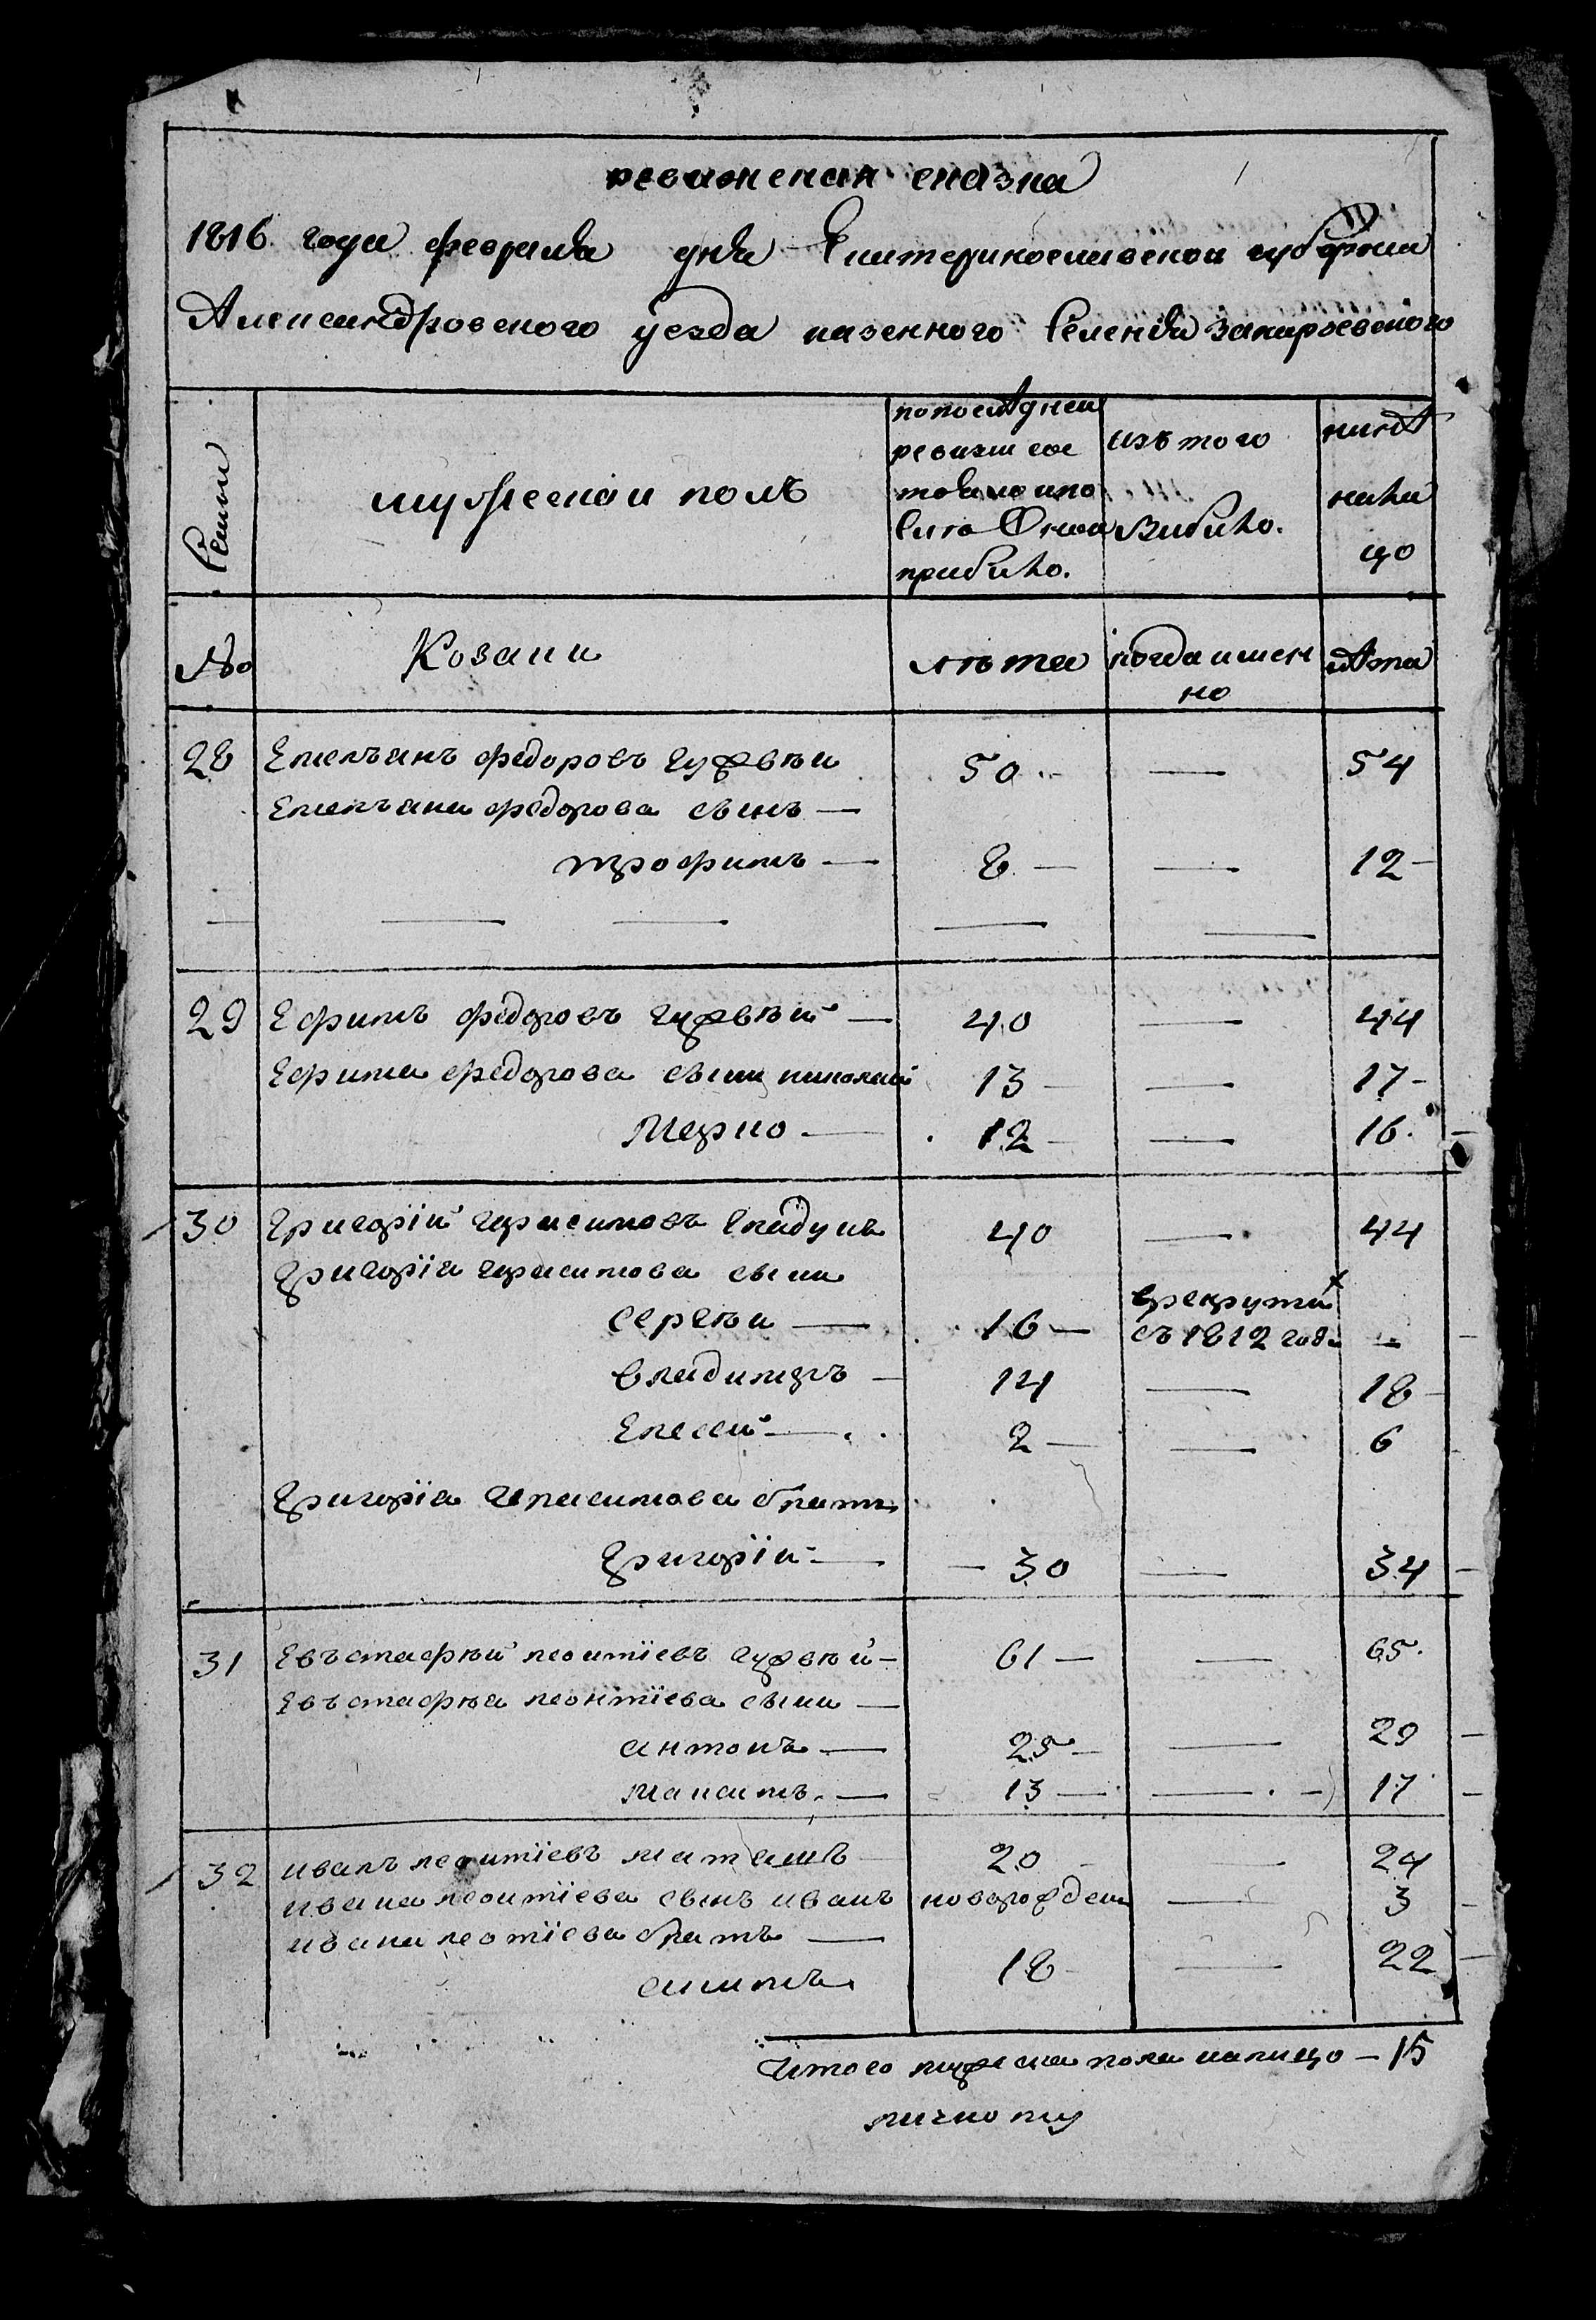 ревижская сказка
1816 года февраля дня Екатеринославской губернии
Александровского уезда казенного селения захарьевского
Семьи
мужеской полъ
попоследнеи
ревизии сос
тояло ипо
слѣ Онои
прибило.
изъ того
Вибило.
нинѣ
нали
цо
№
Козаки
лѣта
когда имен
но
лѣта
28 Емельянъ федоровъ 50 — 54
Емельяна федорова сынъ —
трофимъ — 8 — — 12 —
29 Ефимъ федоровъ — 40 — 44
Ефима федорова сыни николай 13 — — 17 —
Марко — 12 — — 16
30 Григорій герасимовъ 40 — 44
Григорія герасимова сыни
сергѣи — 16 — врекрути
съ 1812 года —
владимиръ — 14 — 18 —
Елесей — 2 — — 6
Григорія Герасимова братъ
Григорій — — 30 — 34 —
31 Евъстафѣй леонтіевъ — 61 — — 65
Евъстафѣя леонтіева сыни —
антонъ — 25 — — 29 —
Максимъ — 13 — — 17 —
32 иванъ леонтіевъ 20 — 24
ивана леонтіева сынъ иванъ новорожден — 3 —
ивана леотіева братъ —
18 — 22 —
Итого мужеска пола налицо — 15